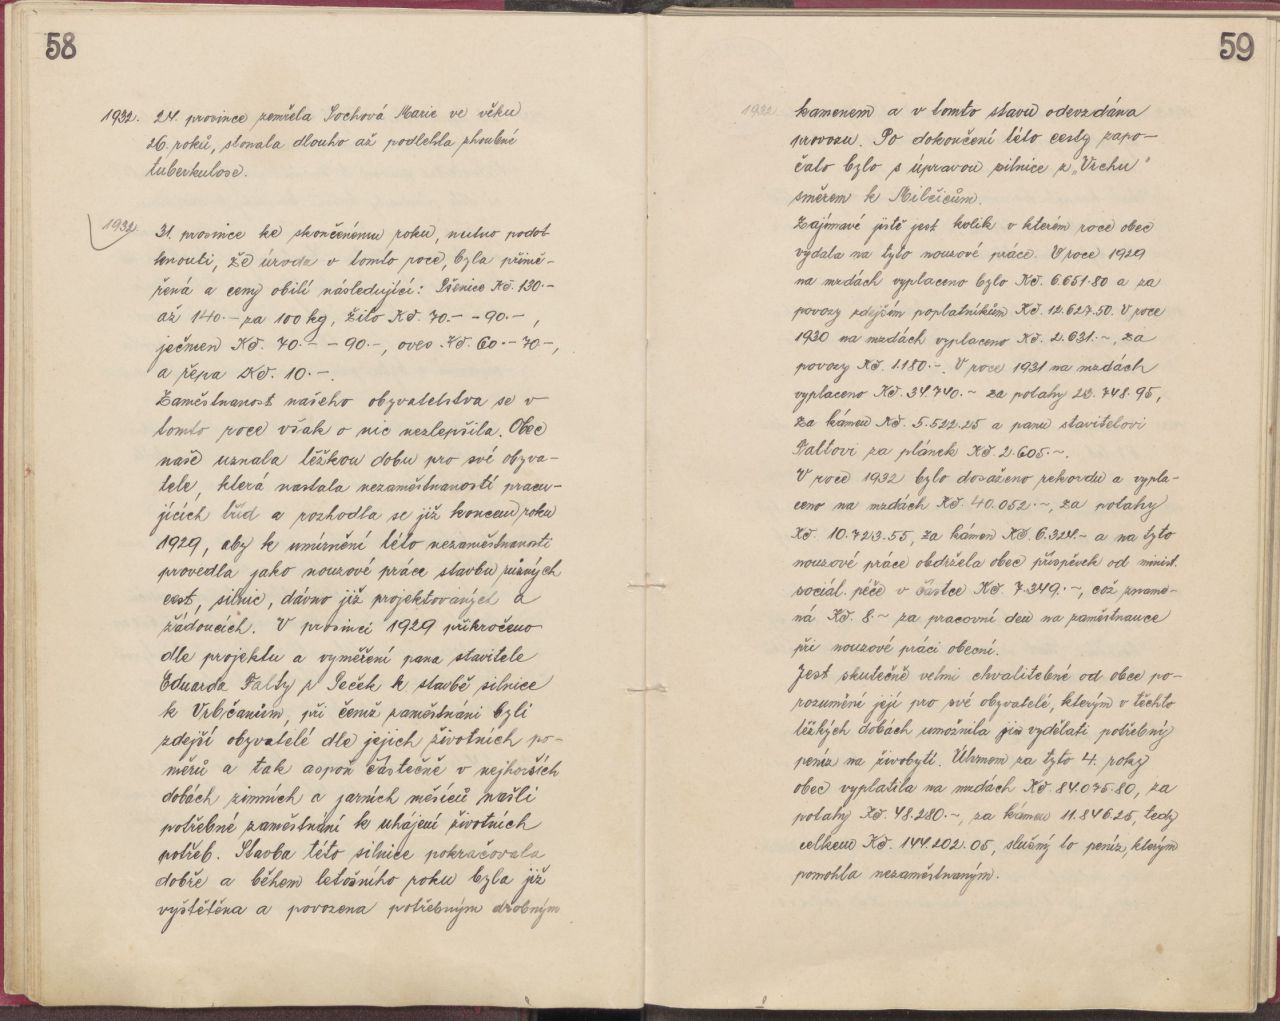 58
1932. 24. prosince zemřela Sochová Marie ve věku
26. roků, stonala dlouho až podlehla zhoubné
tuberkulose.
1932. 31. prosince ke skončenému roku, nutno podot
knouti, že úroda v tomto roce, byla přimě-
řená a ceny obilí následující: Pšenice Kč. 130.-
až 140.- za 100 kg, žito Kč. 70.- - 90.-,
ječmen Kč. 70.- - 90.-, oves Kč. 60.- 70-,
a řepa Kč. 10.-.
Zaměstnanost našeho obyvatelstva se v
tomto roce však o nic nezlepšila. Obec
naše uznala těžkou dobu pro své obyva-
tele, která nastala nezaměstnaností pracu-
jících tříd a rozhodla se již koncem roku
1929, aby k umírnění této nezaměstnanosti
provedla jako nouzové práce stavbu různých
cest, silnic, dávno již projektovaných a
žádoucích. V prosinci 1929 přikročeno
dle projektu a vyměření pana stavitele
Eduarda Falty z Peček k stavbě silnice
k Vrbčanům, při čemž zaměstnáni byli
zdejší obyvatelé dle jejich životních po-
měrů a tak aspoň částečně v nejhorších
dobách zimních a jarních měsíců našli
potřebné zaměstnání k uhájení životních
potřeb. Stavba této silnice pokračovala
dobře a během letošního roku byla již
vyštětěna a povozena potřebným drobným
59
1932 kamenem a v tomto stavu odevzdána
provozu. Po dokončení této cesty zapo-
čato bylo s úpravou silnice z „Vrchu"
směrem k Milčicům.
Zajímavé jistě jest kolik v kterém roce obec
vydala na tyto nouzové práce. V roce 1929
na mzdách vyplaceno bylo Kč. 6.651.80 a za
povozy zdejším poplatníkům Kč. 12.627.50. V roce
1930 na mzdách vyplaceno Kč. 2.631.-, za
povozy Kč. 1.180.-. V roce 1931 na mzdách
vyplaceno Kč. 34.740.- za potahy 23.748.95,
za kámen Kč. 5.522.25 a panu staviteloví
Faltovi za plánek Kč. 2.605.-.
V roce 1932 bylo dosaženo rekordu a vypla-
ceno na mzdách Kč. 40.052.-, za potahy
Kč. 10.723.55, za kámen Kč. 6.324.- a na tyto
nouzové práce obdržela obec příspěvek od minist.
sociál. péče v částce Kč. 7.349.-, což zname-
ná Kč. 8.- za pracovní den na zaměstnance
při nouzové práci obecní.
Jest skutečně velmi chvalitebné od obce po-
rozumění její pro své obyvatelé, kterým v těchto
těžkých dobách umožnila jim vydělati potřebný
peníz na živobytí. Úhrnom za tyto 4. roky
obec vyplatila na mzdách Kč. 84.075.80, za
potahy Kč. 48.280.-, za kámen 11.846.25, tedy
celkem Kč. 144.202.05, slušný to peníz, kterým
pomohla nezaměstnaným.